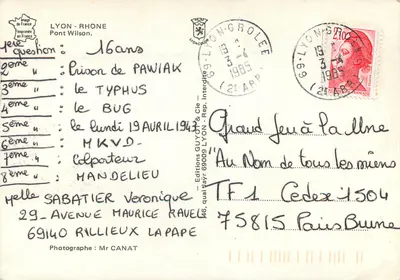 Image
de France
LYON - RHÔNE
Pont Wilson.
1ère question : 16 ans
2ème " : Prison de PAWIAK
3ème " : le TYPHUS
4ème " : le BUG
5ème " : le lundi 19 AVRIL 1943
6ème " : MKVD.
7ème " : Colporteur
8ème " : MANDELIEU
Melle SABATIER Veronique
29 - AVENUE MAURICE RAVEL
69140 RILLIEUX LA PAPE
Photographe : Mr CANAT
- Editions GUYOT & Cie -
69009 LYON - Rep. Interdite
69 - LYON GROLEE
19 H
3 - 4
1985
(2e ARR.)
69 - LYON GROLEE
19 H
3 - 4
1985
(2e ARR.)
Grand Jeu à la Une
"Au Nom de tous les miens"
TF1 Cedex 1504
75815 Paris Brune